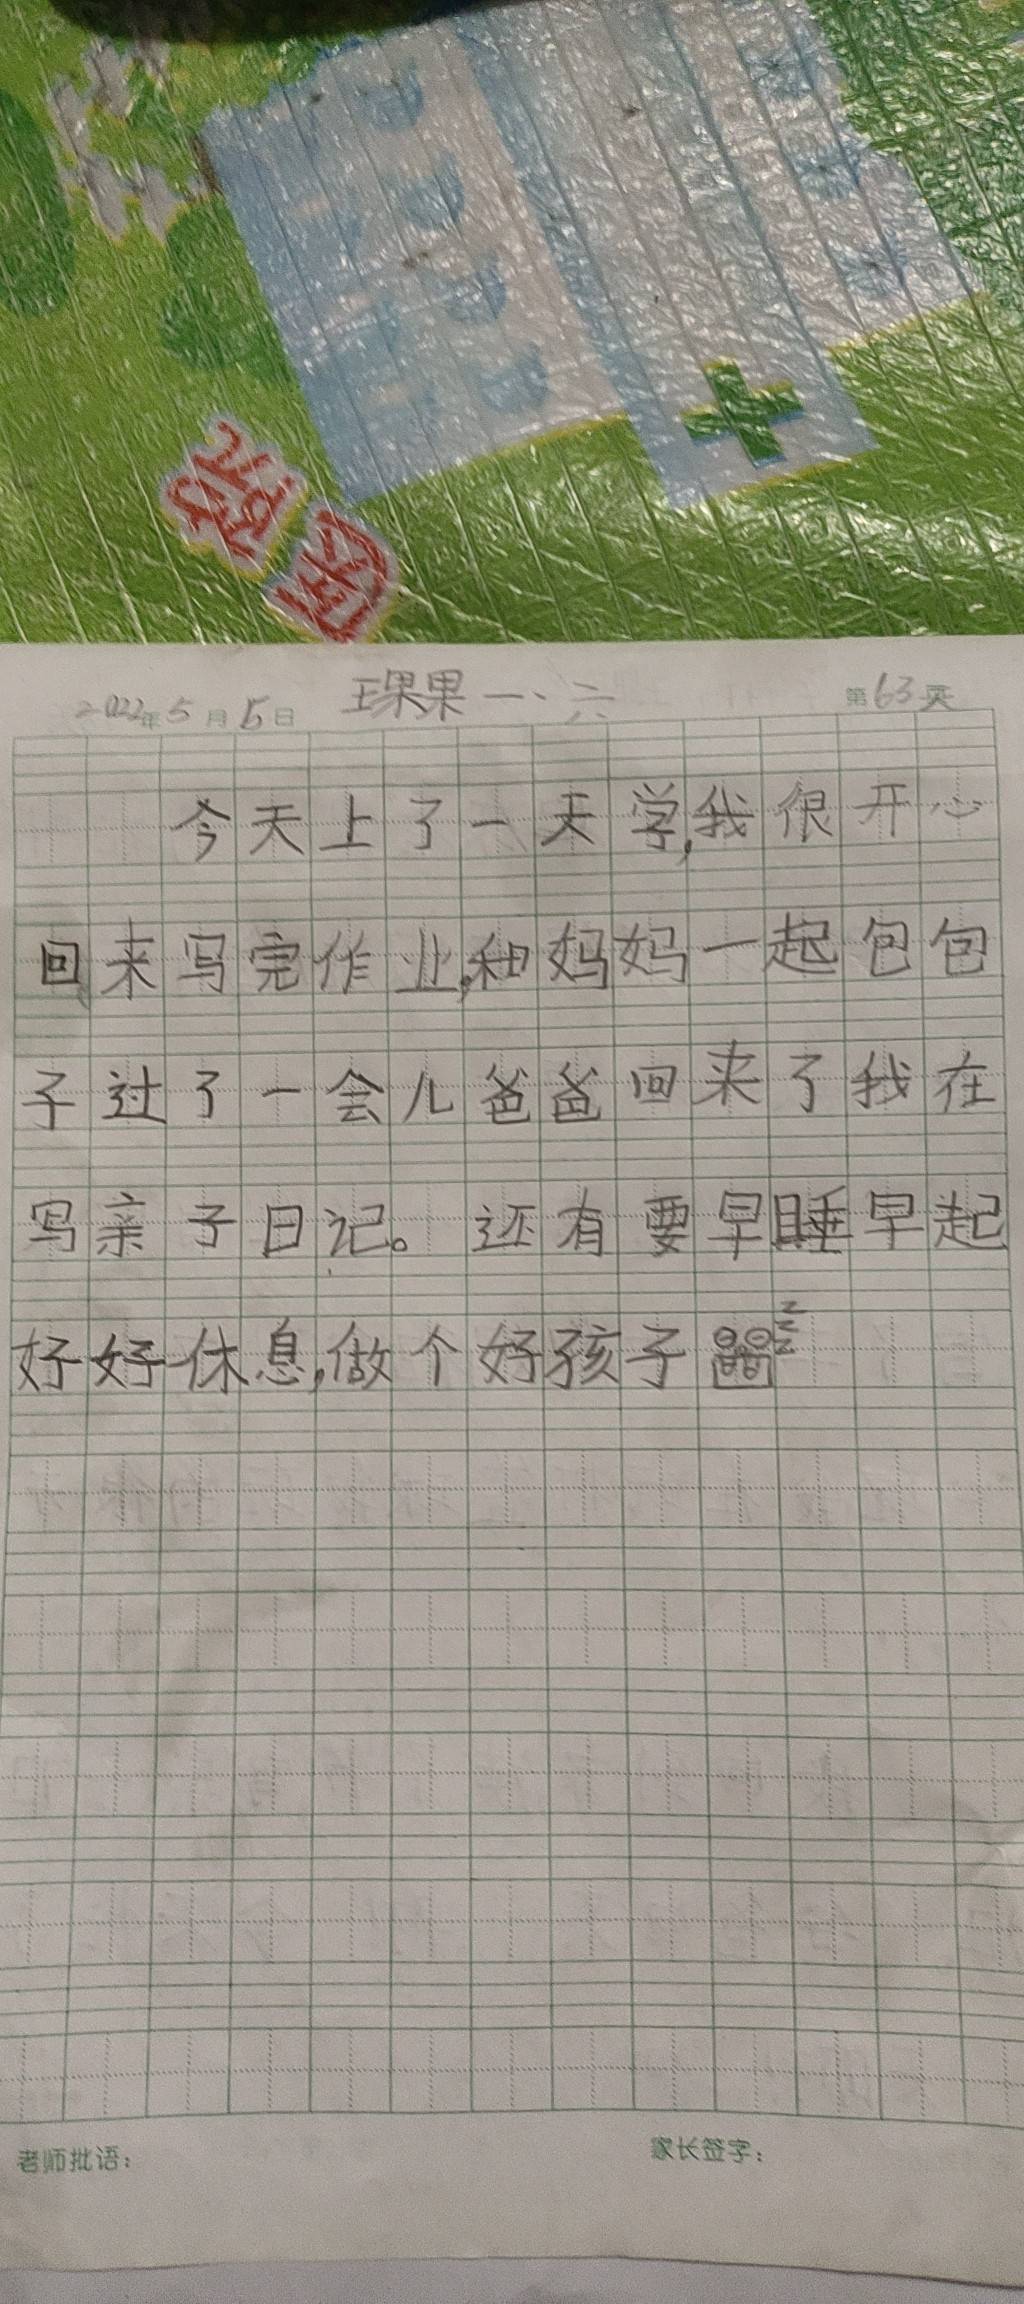 2022年5月5日 王果果 一、六 第63页
今天上了一天学,我很开心
回来写完作业,和妈妈一起包包
子过了一会儿爸爸回来了我在
写亲子日记。还有要早睡早起
好好休息,做个好孩子
zzz
老师批语: 家长签字: